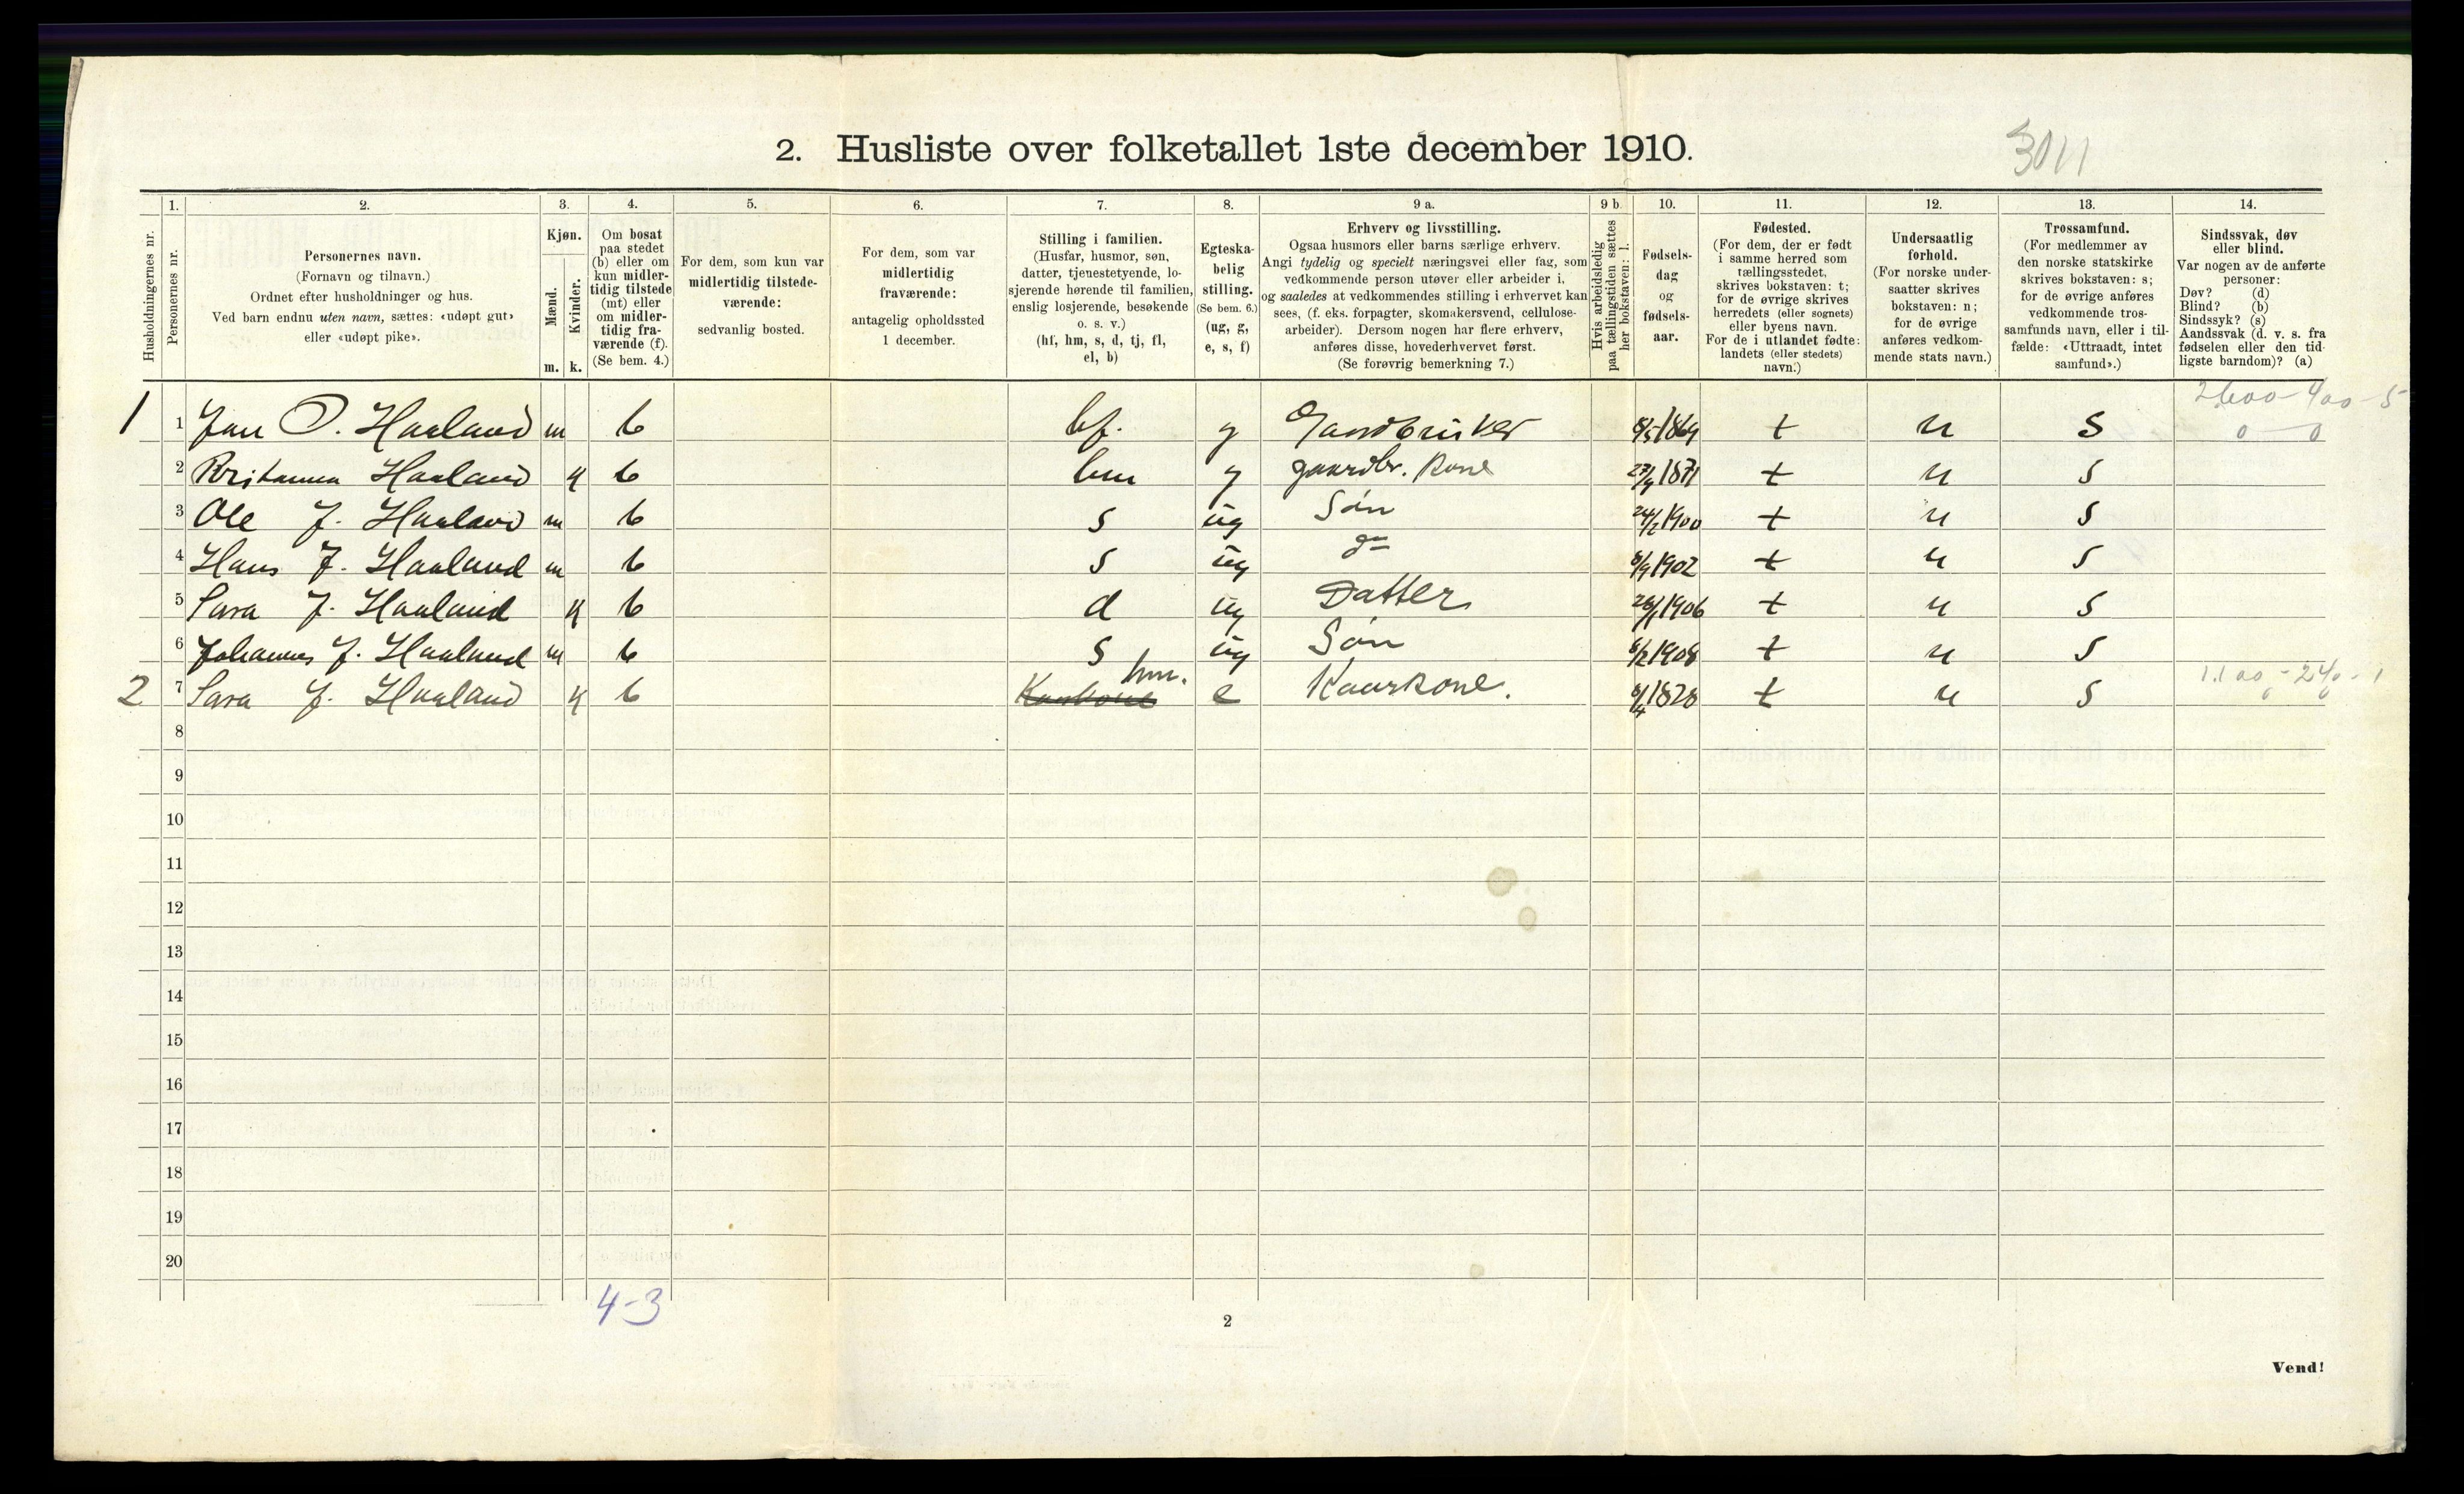 2. Husliste over folketallet 1ste december 1910.
3011
1. 2. 3. 4. 5. 6. 7. 8. 9 a. 9 b. 10. 11. 12. 13. 14.
Husholdningernes nr.
Personernes nr.
Personernes navn.
(Fornavn og tilnavn.)
Ordnet efter husholdninger og hus.
Ved barn endnu uten navn, sættes: «udøpt gut»
eller «udøpt pike».
Kjøn.
Mænd.
Kvinder.
m. k.
Om bosat
paa stedet
(b) eller om
kun midler-
tidig tilstede
(mt) eller
om midler-
tidig fra-
værende (f).
(Se bem. 4.)
For dem, som kun var
midlertidig tilstede-
værende:
sedvanlig bosted.
For dem, som var
midlertidig
fraværende:
antagelig opholdssted
1 december.
Stilling i familien.
(Husfar, husmor, søn,
datter, tjenestetyende, lo-
sjerende hørende til familien,
enslig losjerende, besøkende
o. s. v.)
(hf, hm, s, d, tj, fl,
el, b)
Egteska-
belig
stilling.
(Se bem. 6.)
(ug, g,
e, s, f)
Erhverv og livsstilling.
Ogsaa husmors eller barns særlige erhverv.
Angi tydelig og specielt næringsvei eller fag, som
vedkommende person utøver eller arbeider i,
og saaledes at vedkommendes stilling i erhvervet kan
sees, (f. eks. forpagter, skomakersvend, cellulose-
arbeider). Dersom nogen har flere erhverv,
anføres disse, hovederhvervet først.
(Se forøvrig bemerkning 7.)
Hvis arbeidsledig
paa tællingstiden sættes
her bokstaven: l.
Fødsels-
dag
og
fødsels-
aar.
Fødested.
(For dem, der er født
i samme herred som
tællingsstedet,
skrives bokstaven: t;
for de øvrige skrives
herredets (eller sognets)
eller byens navn.
For de i utlandet fødte:
landets (eller stedets)
navn.)
Undersaatlig
forhold.
(For norske under-
saatter skrives
bokstaven: n;
for de øvrige
anføres vedkom-
mende stats navn.)
Trossamfund.
(For medlemmer av
den norske statskirke
skrives bokstaven: s;
for de øvrige anføres
vedkommende tros-
samfunds navn, eller i til-
fælde: «Uttraadt, intet
samfund».)
Sindssvak, døv
eller blind.
Var nogen av de anførte
personer:
Døv? (d)
Blind? (b)
Sindssyk? (s)
Aandssvak (d. v. s. fra
fødselen eller den tid-
ligste barndom)? (a)
2600-400-5
1 1 Jan O. Haaland m b hf. g Gaardbruker 8/5 1869 t n S 0 0
2 Haaland k b hm g gaardbr. kone 27/4 1871 t n S
3 Ole J. Haaland m b s ug Søn 24/2 1900 t n S
4 Hans J. Haaland m b s ug do 8/9 1902 t n S
5 Sara J. Haaland k b d ug Datter 28/1 1906 t n S
6 Johannes J. Haaland m b s ug Søn 8/2 1908 t n S
2 7 Sara J. Haaland k b Kaarkone hm. e Kaarkone. 8/4 1828 t n S 1.100-240-1
8
9
10
11
12
13
14
15
16
17
18
19
20
4-3
2
Vend!